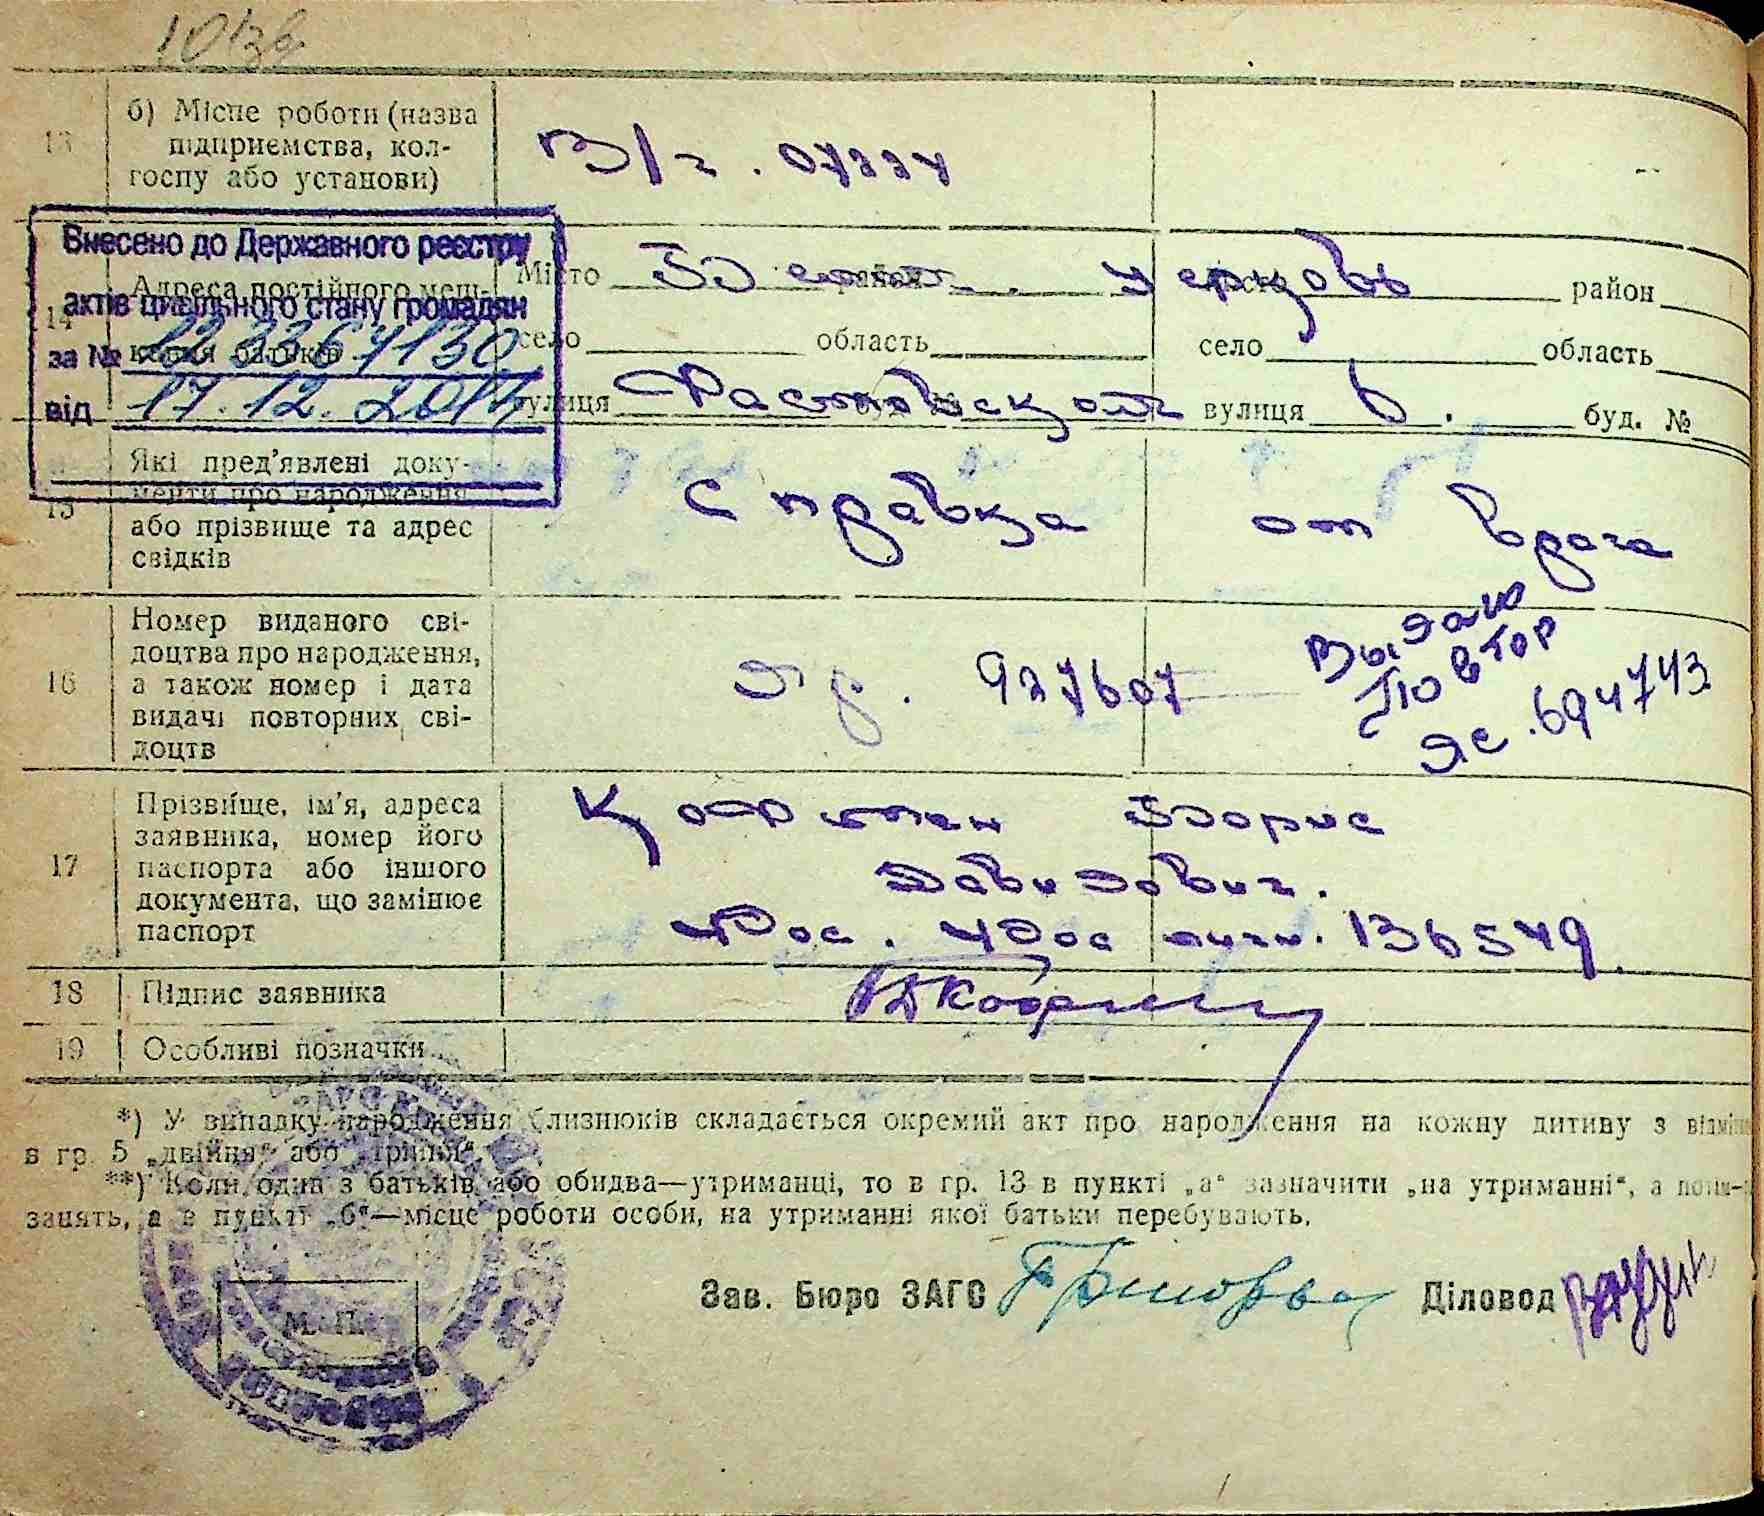 13 б) Місце роботи (назва підприємства, колгоспу або установи)
В/ч. 07224
Внесено до Державного реєстру
актів цивільного стану громадян
за №
від 17.12.
14 Адреса постійного меш-
кання батьків
Місто Белая Церковь район
село область село область
вулиця вулиця 6. буд. №
15 Які пред’явлені доку-
менти про народження
або прізвище та адрес
свідків
Справка от врача
16 Номер виданого сві-
доцтва про народження,
а також номер і дата
видачі повторних сві-
доцтв
927607
Выдано
повтор
694743
17 Прізвище, ім’я, адреса
заявника, номер його
паспорта або іншого
документа, що замінює
паспорт
Кофман Борис
Давидович.
личн. 136549.
18 Підпис заявника
19 Особливі позначки
*) У випадку народження близнюків складається окремий акт про народження на кожну дитину з
в гр. 5 „двійня“ або „трійня“.
**) Коли один з батьків або обидва—утриманці, то в гр. 13 в пункті „а“ зазначити „на утриманні“, а
занять, а в пункті „б“—місце роботи особи, на утриманні якої батьки перебувають.
Зав. Бюро ЗАГС Діловод
М. П.